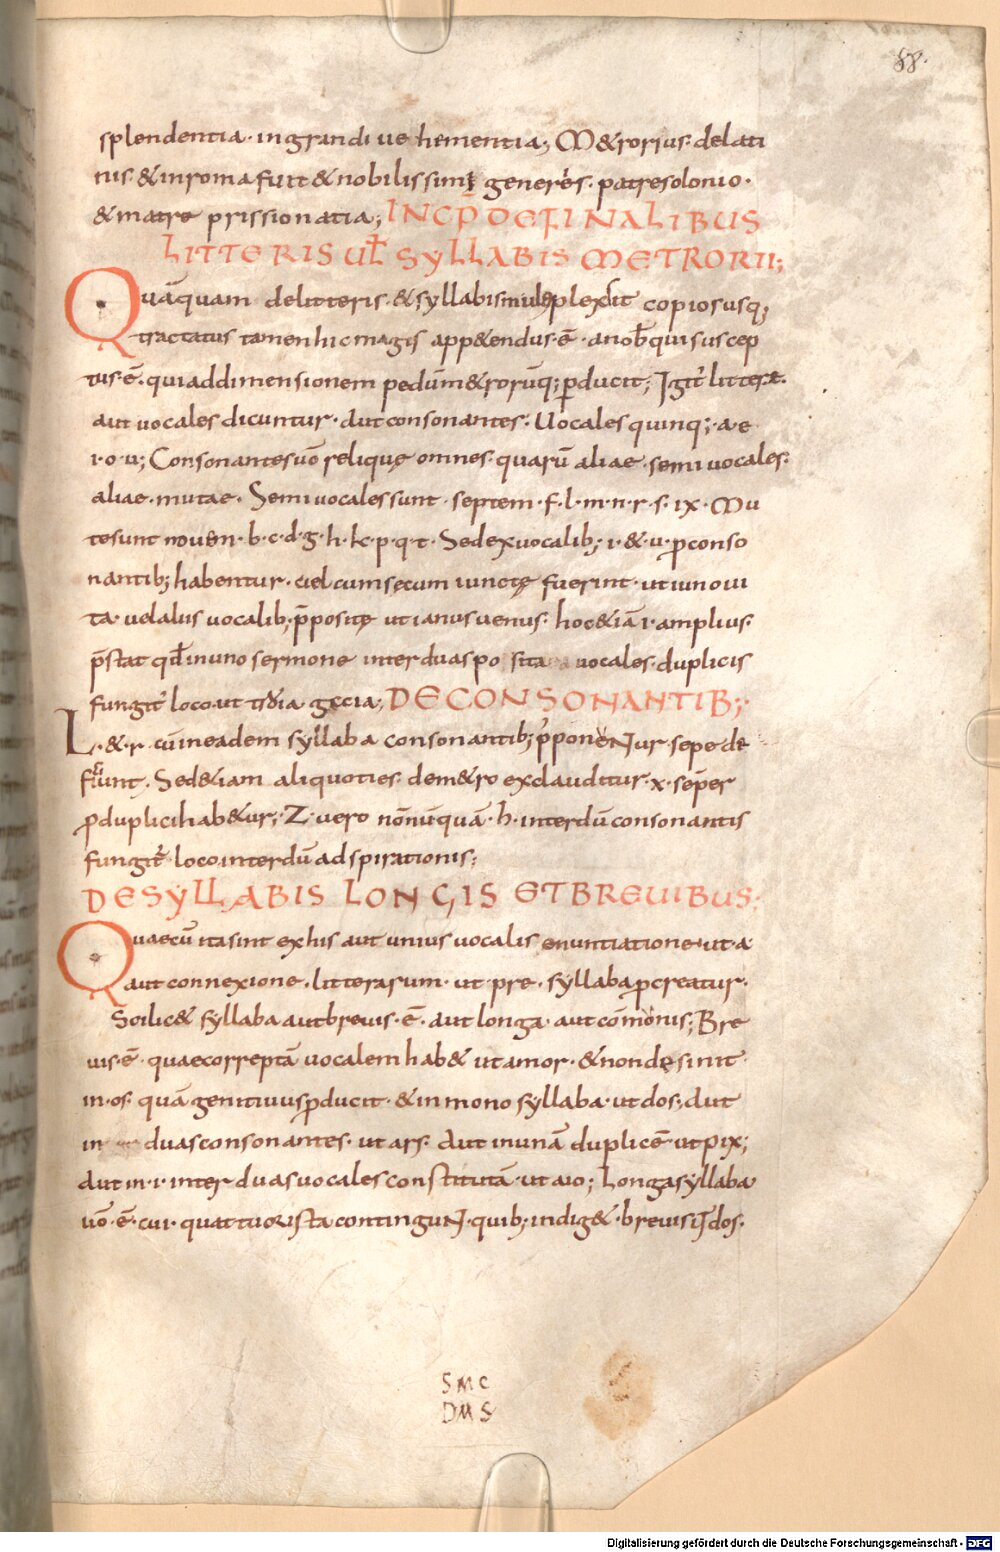 58.
splendentia· ingrandi ue hementia; M&rorius· delati
nis· &inroma fuit &nobilissimi generis· patre solonio·
&matre prissionatia; INCP̄ DE FINALIBUS
LITTERIS UL̄ SYLLABIS METRORII;
Quāquam delitteris· &syllabis multiplex sit copiosusq;
tractatus tamen hic magis app&endus·ē· anob̄ qui suscep
tus·ē· quiaddimensionem pedūm&rorūq; ꝑducit; Igit̄ litterę·
aut uocales dicuntur· aut consonantes· Uocales quinq;· a·e·
i·o·u; Consonantes uō relique omnes· quarū aliae· semi uocales·
aliae· mutae· Semi uocales sunt· septem· f·l·m·n·r·s· ıx· Mu
te sunt nouen· b·c·d·g·h·k·p·q·t· Sed ex uocalib; i·&·u· ꝓ conso
nantib; habentur· uel cum secum iunctę fuerint· ut iuno ui
ta· uel aliis uocalib; p̄positę ut ianus uenus· hoc &iā i· amplius·
p̄stat qd̄ inuno sermone inter duas po sita uocales· duplicis
fungit̄ loco· ut gęcia; DE CONSONANTIB;·
L·&·r· cū in eadem syllaba consonantib; p̄ponuntur sepe de
fiunt· Sed &iam aliquoties· dem&ro exclauditur· x· sēper
ꝓ duplici hab&ur; Z· uero nōnūquā· h· interdū consonantis
fungit̄ loco interdū adspirationis;
DE SYLLABIS LONGIS ET BREUIBUS;
Quaecū ita sint ex his aut unius uocalis enuntiatione· ut a·
aut connexione· litterarum· ut pre· syllaba ꝓcreatur·
Scilic& syllaba aut breuis·ē· aut longa· aut cōmonis; Bre
uis·ē· quae correptā uocalem hab& ut amor· &non desinit·
in·os· quā genitiuus ꝓducit· &in mono syllaba· ut dos; aut
in duas consonantes· ut ars· aut in unā duplicē· ut pix;
aut in·i· inter duas uocales constitutā· ut aio; Longa syllaba
uō·ē· cui· quattuor ista contingunt· quib; indig& breuis· id· dos·
SMC
DMS
Digitalisierung gefördert durch die Deutsche Forschungsgemeinschaft - DFG